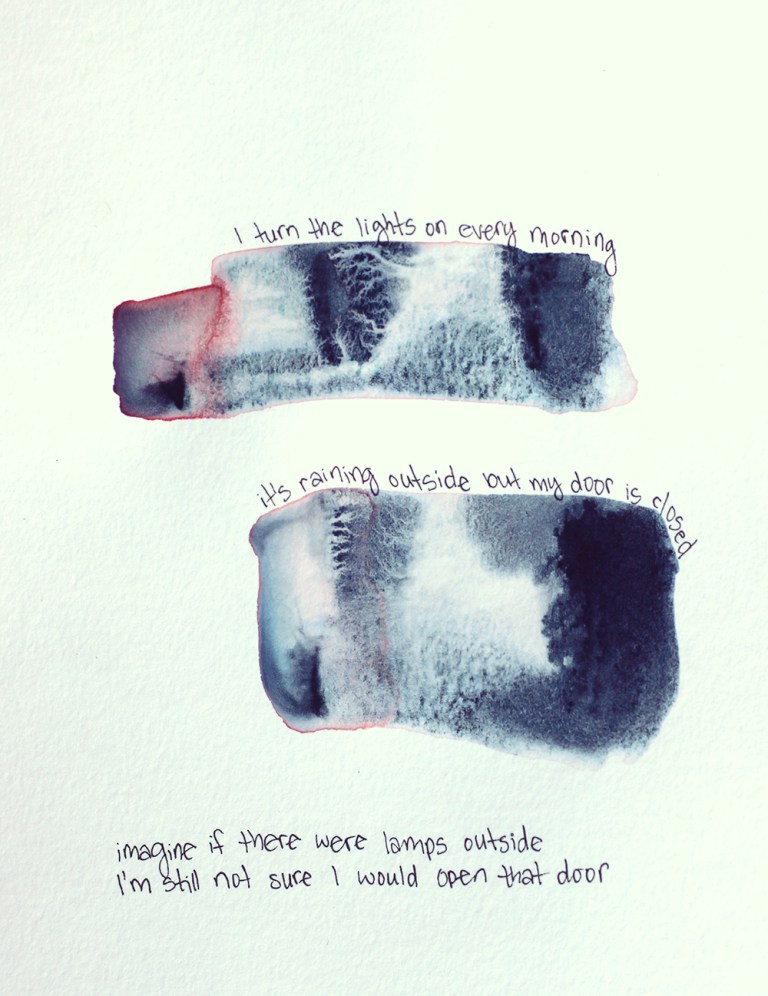 I turn the lights on every morning
it's raining outside but my door is closed
imagine if there were lamps outside
I'm still not sure I would open that door